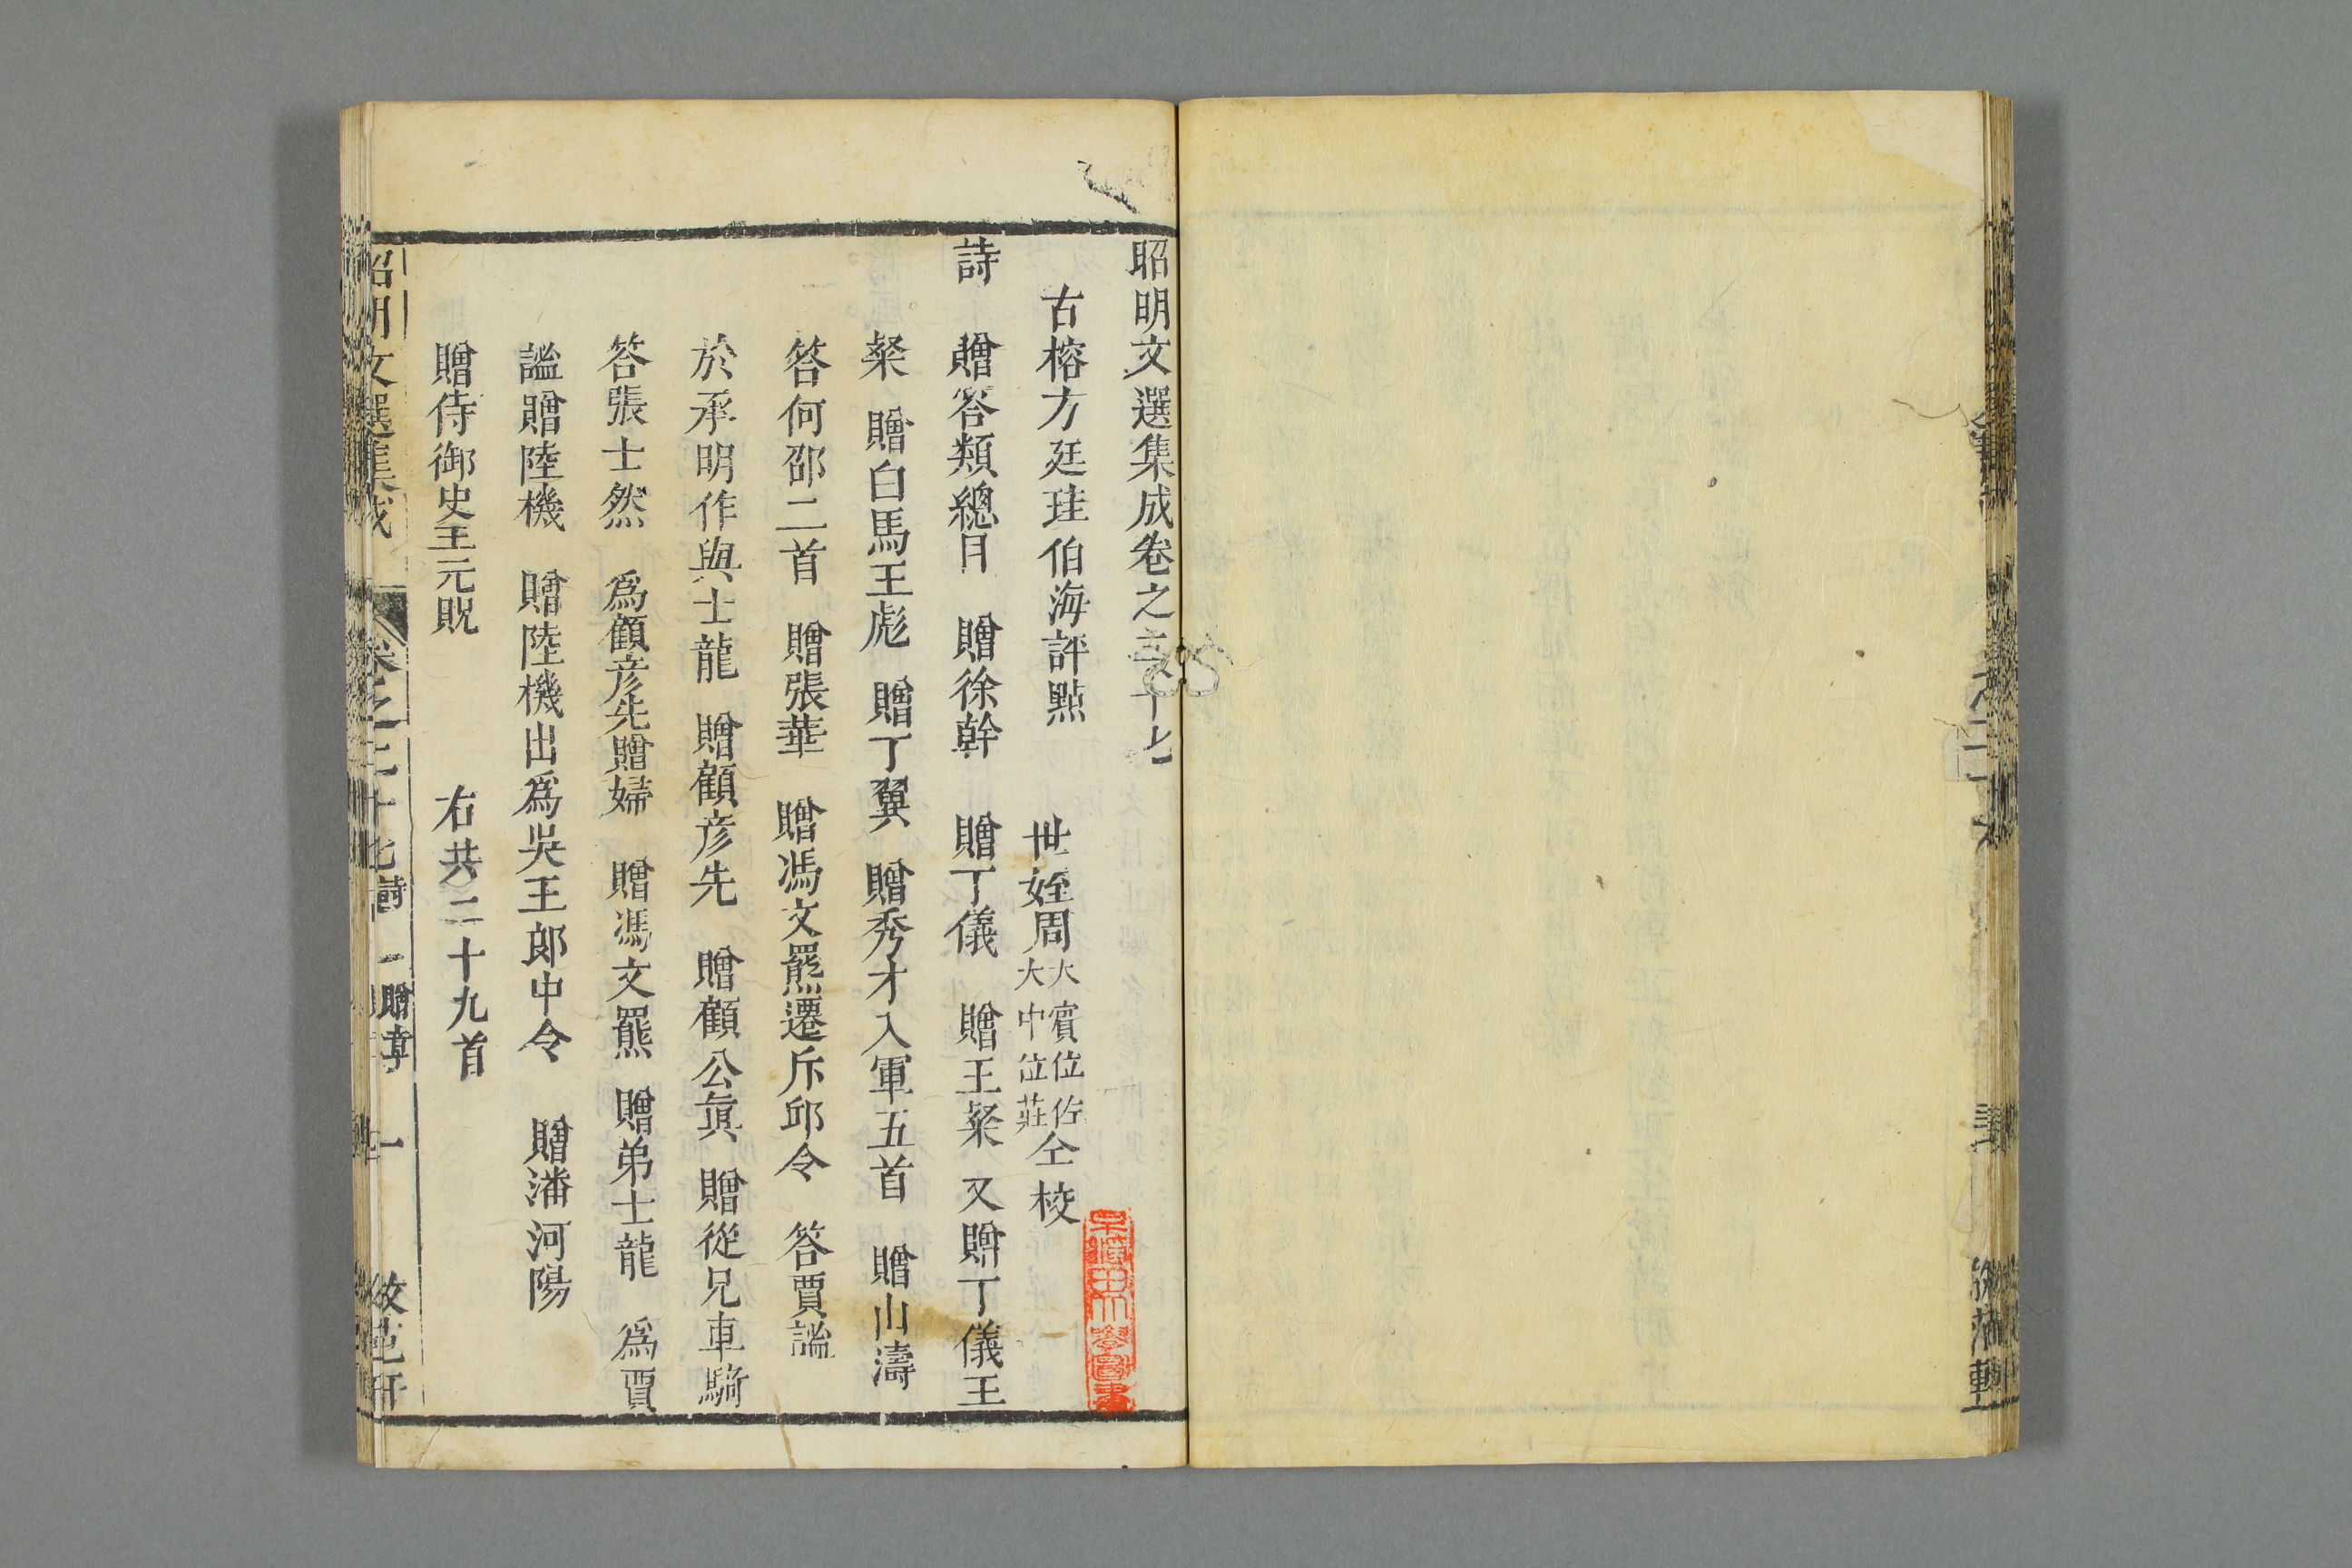 昭明文選集成卷之二十七
古榕方廷珪伯海評點
世姪周大賓位佐大中位莊仝校
詩 贈答類總目 贈徐幹 贈丁儀 贈王粲 又贈丁儀王
粲 贈白馬王彪 贈丁翼 贈秀才入軍五首 贈山濤
答何邵二首 贈張華 贈馮文羆遷斥邱令 答賈謐
於承明作與士龍 贈顧彦先 贈顧公眞 贈從兄車騎
答張士然 爲顧彦先贈婦 贈馮文羆 贈弟士龍 爲賈
謐贈陸機 贈陸機出爲吳王郎中令 贈潘河陽
贈侍御史王元貺
右共二十九首
昭明文選集成 卷之二十七 詩一 贈 一 倣范軒